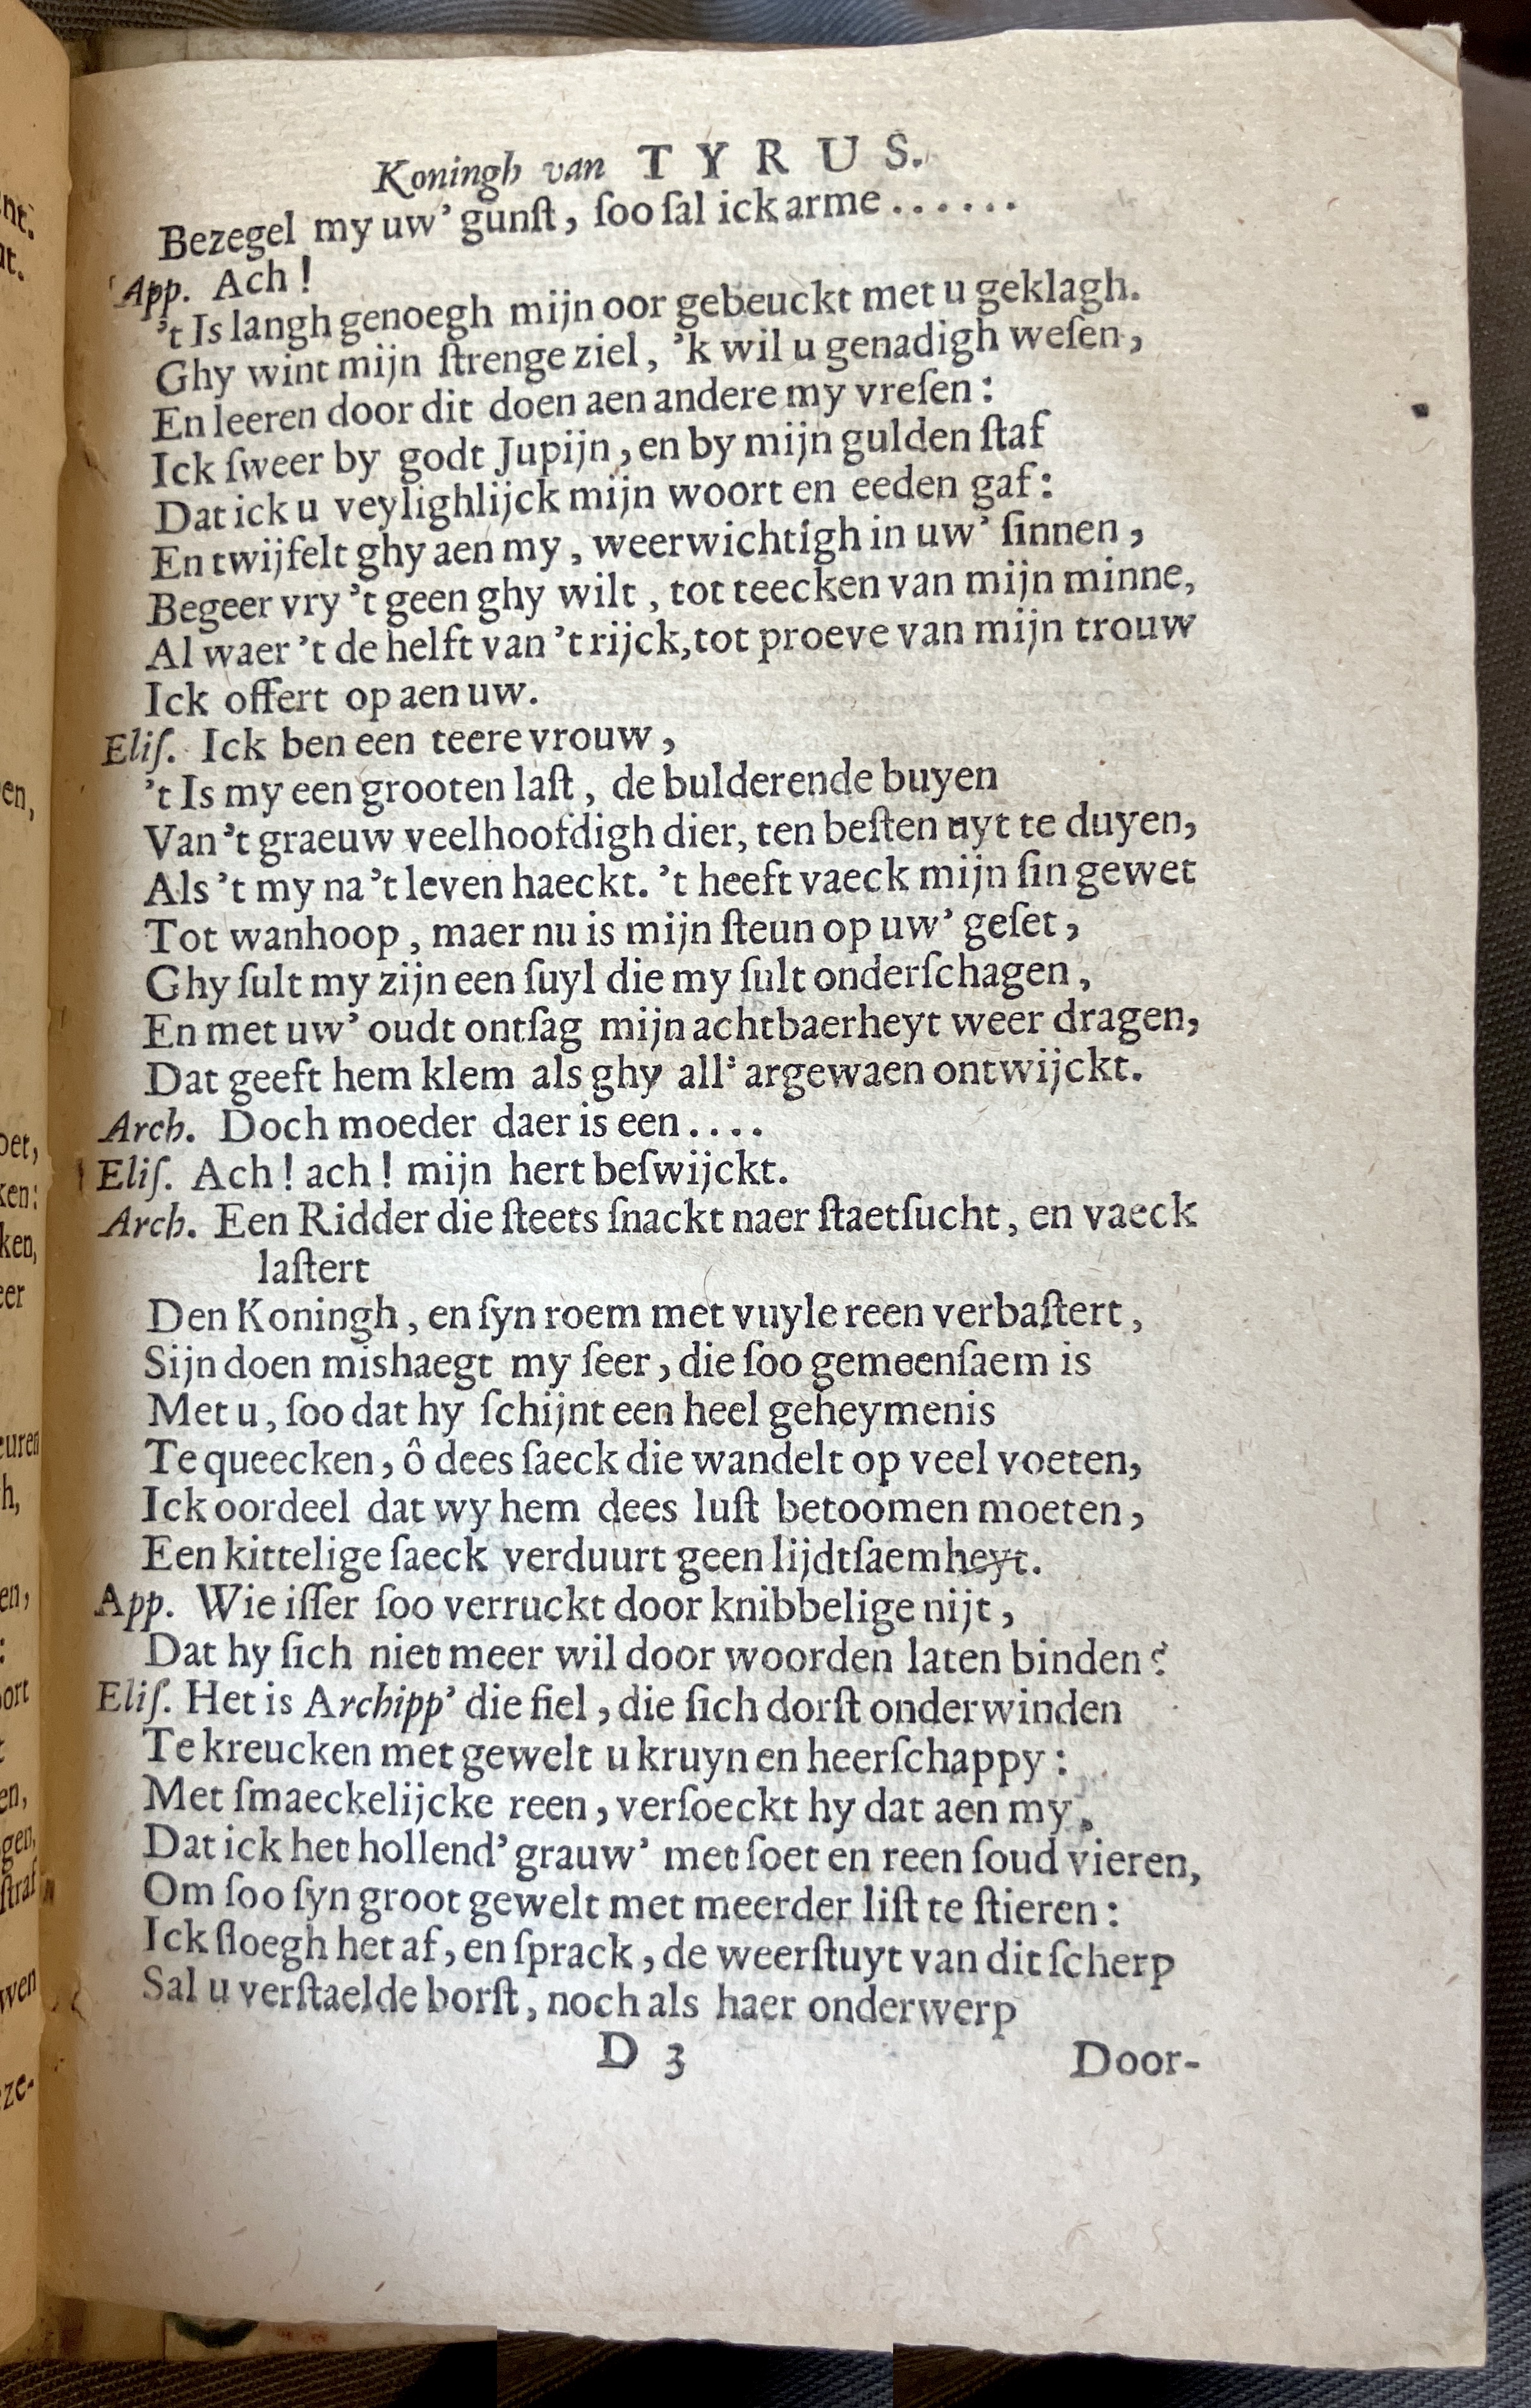 Koningh van TYRUS.
Bezegel my uw’ gunſt, ſoo ſal ick arme......
App. Ach!
’t Is langh genoegh mijn oor gebeuckt met u geklagh.
Ghy wint mijn ſtrenge ziel, ’k wil u genadigh weſen,
En leeren door dit doen aen andere my vreſen:
Ick ſweer by godt Jupijn, en by mijn gulden ſtaf
Dat ick u veylighlijck mijn woort en eeden gaf:
En twijfelt ghy aen my, weerwichtigh in uw’ ſinnen,
Begeer vry ’t geen ghy wilt, tot teecken van mijn minne,
Al waer ’t de helft van ’t rijck, tot proeve van mijn trouw
Ick offert op aen uw.
Eliſ. Ick ben een teere vrouw,
’t Is my een grooten laſt, de bulderende buyen
Van ’t graeuw veelhoofdigh dier, ten beſten uyt te duyen,
Als ’t my na ’t leven haeckt. ’t heeft vaeck mijn ſin gewet
Tot wanhoop, maer nu is mijn ſteun op uw’ geſet,
Ghy ſult my zijn een ſuyl die my ſult onderſchagen,
En met uw’ oudt ontſag mijn achtbaerheyt weer dragen,
Dat geeft hem klem als ghy all’ argewaen ontwijckt.
Arch. Doch moeder daer is een....
Eliſ. Ach! ach! mijn hert beſwijckt.
Arch. Een Ridder die ſteets ſnackt naer ſtaetſucht, en vaeck
laſtert
Den Koningh, en ſyn roem met vuyle reen verbaſtert,
Sijn doen mishaegt my ſeer, die ſoo gemeenſaem is
Met u, ſoo dat hy ſchijnt een heel geheymenis
Te queecken, ô dees ſaeck die wandelt op veel voeten,
Ick oordeel dat wy hem dees luſt betoomen moeten,
Een kittelige ſaeck verduurt geen lijdtſaemheyt.
App. Wie iſſer ſoo verruckt door knibbelige nijt,
Dat hy ſich niet meer wil door woorden laten binden?
Eliſ. Het is Archipp’ die fiel, die ſich dorſt onderwinden
Te kreucken met gewelt u kruyn en heerſchappy:
Met ſmaeckelijcke reen, verſoeckt hy dat aen my,
Dat ick het hollend’ grauw’ met ſoet en reen ſoud vieren,
Om ſoo ſyn groot gewelt met meerder liſt te ſtieren:
Ick ſloegh het af, en ſprack, de weerſtuyt van dit ſcherp
Sal u verſtaelde borſt, noch als haer onderwerp
D 3 Door-